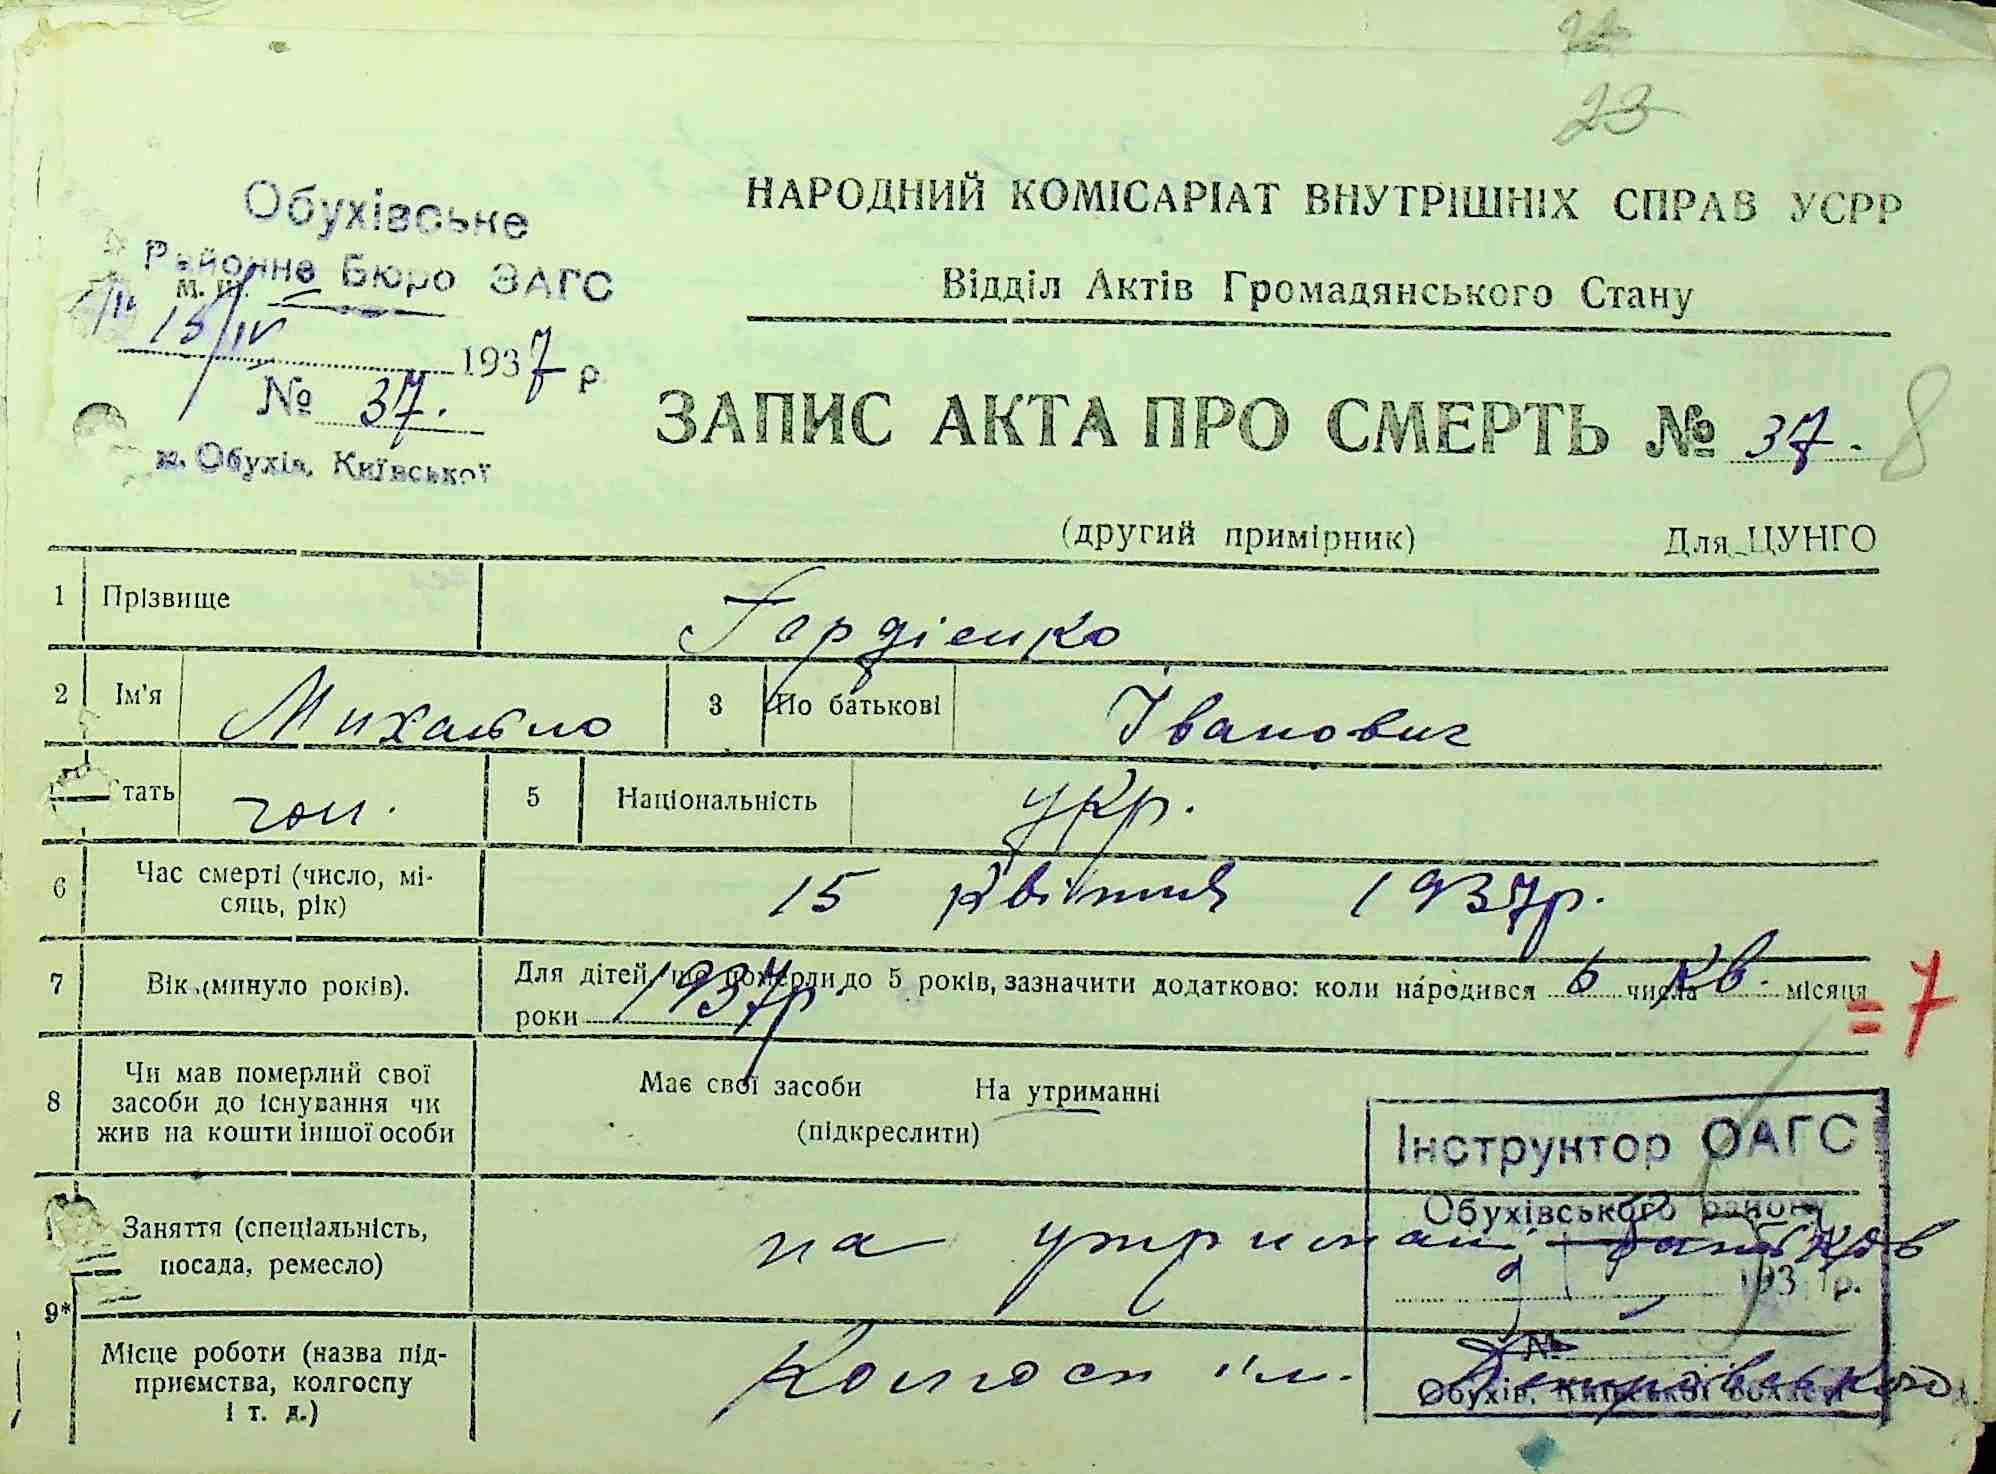 23
Обухівське
НАРОДНИЙ КОМІСАРІАТ ВНУТРІШНІХ СПРАВ УСРР
Районне Бюро ЗАГС
м. п.
Відділ Актів Громадянського Стану
15/IV 1937 р.
№ 37.
ЗАПИС АКТА ПРО СМЕРТЬ № 37. 8
м. Обухів, Київської
(другий примірник) Для ЦУНГО
1 Прізвище Гордієнко
2 Ім'я Михайло 3 По батькові Іванович
Стать чол. 5 Національність укр.
6 Час смерті (число, мі-
сяць, рік) 15 квітня 1937р.
7 Вік (минуло років). Для дітей, що померли до 5 років, зазначити додатково: коли народився 6 числа Кв. місяця
роки 1937р. =7
8 Чи мав померлий свої
засоби до існування чи
жив на кошти іншої особи
Має свої засоби На утриманні
(підкреслити)
Інструктор ОАГС
Обухівського району
193 р.
№
Обухів, Київської області
9* Заняття (спеціальність,
посада, ремесло) на утриман. батьків
Місце роботи (назва під-
приємства, колгоспу
і т. д.) Колгосп ім.